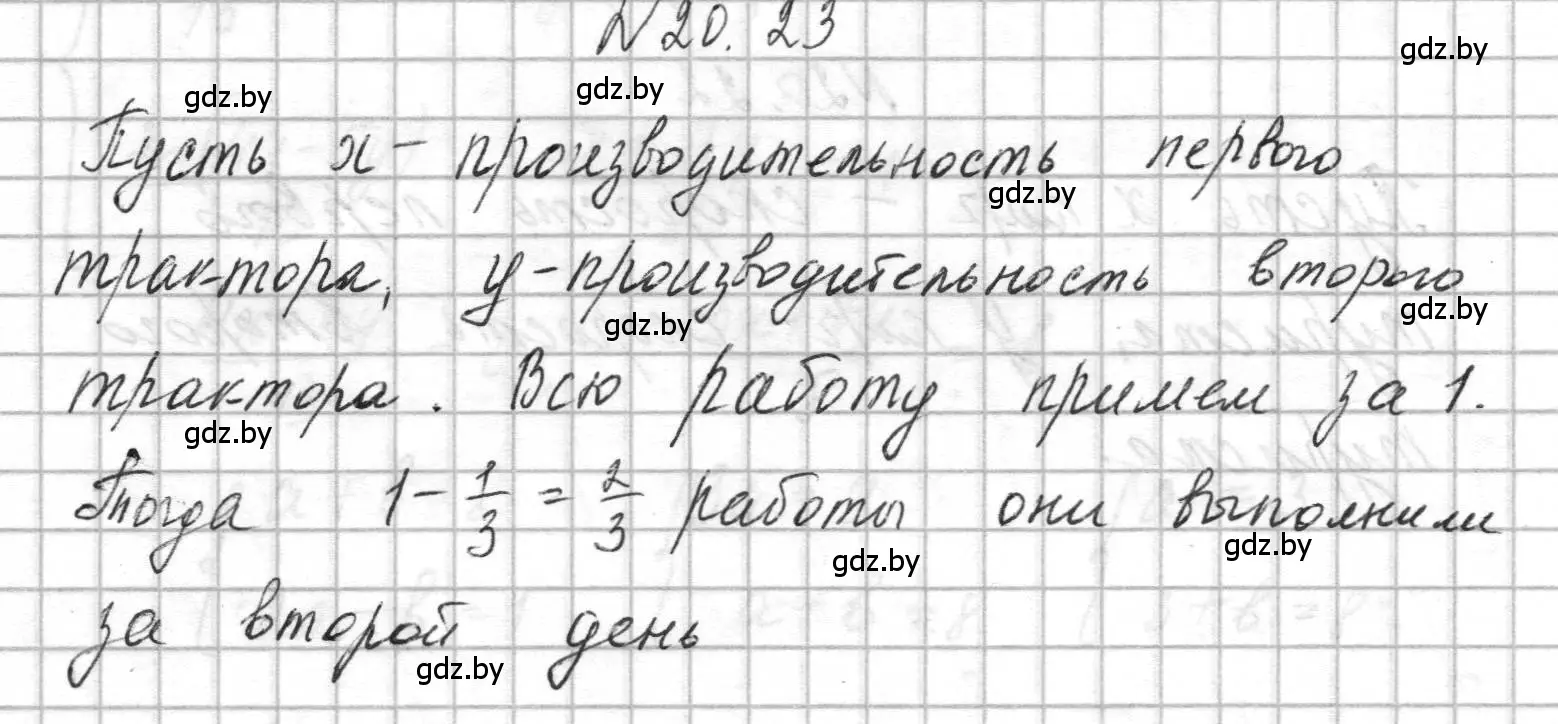 № 20. 23
gdz.by
gdz.by
gdz.by
Пусть x - производительность первого
gdz.by
трактора, y - производительность второго
gdz.by
gdz.by
трактора. Всю работу примем за 1.
gdz.by
Тогда 1 - 1/3 = 2/3 работы они выполнили
gdz.by
gdz.by
за второй день
gdz.by